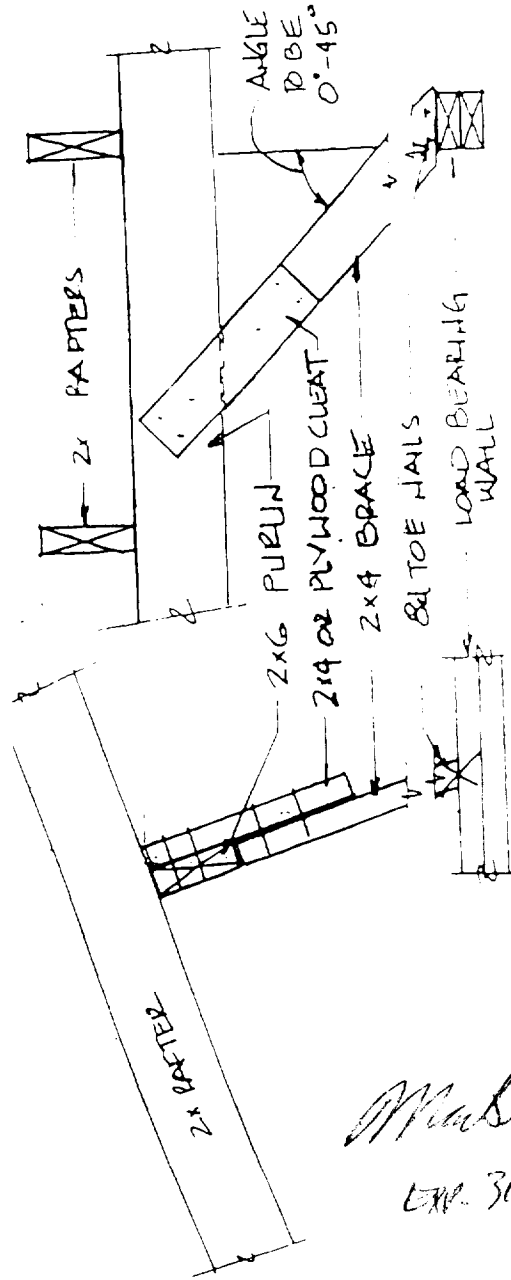 2x RAFTERS
ANGLE
TO BE
0°-45°
2x RAFTER
2x6 PURLIN
2x4 OR PLYWOOD CLEAT
2x4 BRACE
8d TOE NAILS
LOAD BEARING
WALL
EXP.